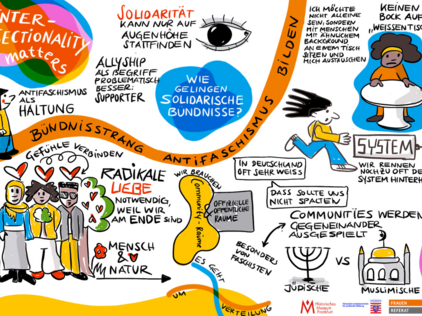 INTER-
SECTIONALITY
matters
ANTIFASCHISMUS
ALS
HALTUNG
SOLIDARITÄT
KANN NUR AUF
AUGENHÖHE
STATTFINDEN
ALLYSHIP
ALS BEGRIFF
PROBLEMATISCH
BESSER:
SUPPORTER
WIE
GELINGEN
SOLIDARISCHE
BÜNDNISSE?
BÜNDNISSTRANG ANTIFASCHISMUS BILDEN
ICH MÖCHTE
NICHT ALLEINE
SEIN, SONDERN
MIT MENSCHEN
MIT ÄHNLICHEM
BACKGROUND
AN EINEM TISCH
SITZEN UND
MICH AUSTAUSCHEN
KEINEN
BOCK AUF
SYSTEM
WIR RENNEN
NOCH ZU OFT DEM
SYSTEM HINTERHER
GEFÜHLE VERBINDEN
RADIKALE
LIEBE
NOTWENDIG,
WEIL WIR
AM ENDE SIND
MENSCH
&
NATUR
WIR BRAUCHEN
Community-Räume
ÖFFENTLICHE
RÄUME
ES GEHT
UM
VERTEILUNG
IN DEUTSCHLAND
OFT SEHR WEISS
DASS SOLLTE UNS
NICHT SPALTEN
COMMUNITIES WERDEN
GEGENEINANDER
AUSGESPIELT
BESONDERS
VON
FASCHISTEN
JÜDISCHE
VS
MUSLIMISCHE
Historisches
Museum
Frankfurt
FRAUEN
REFERAT